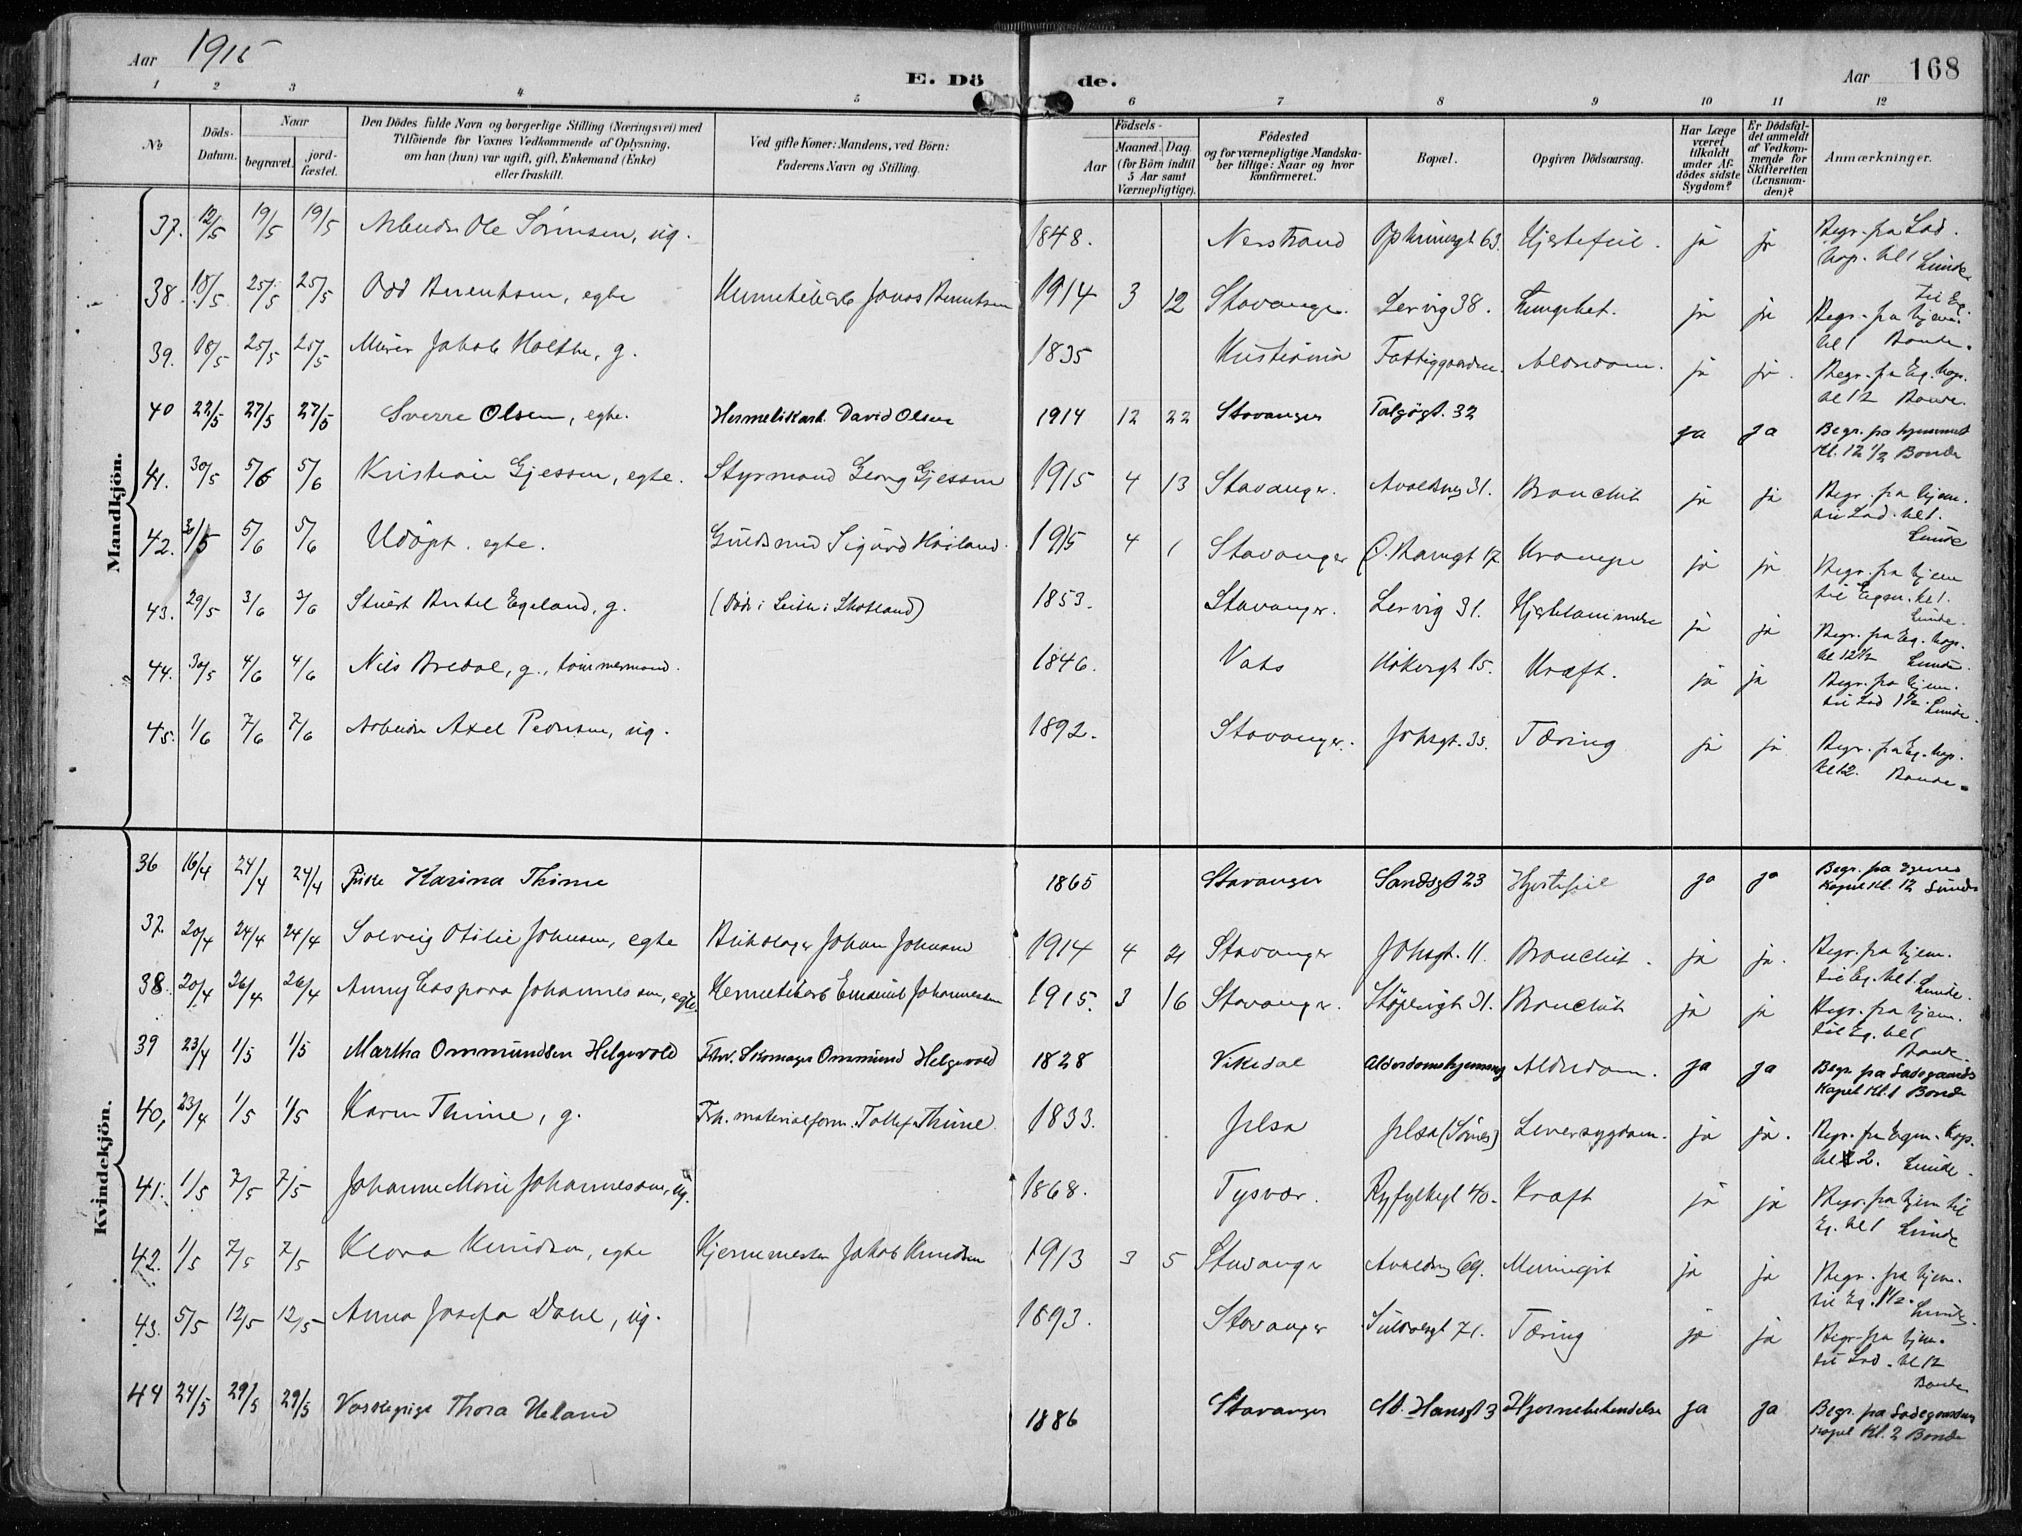 Aar 1915
E. Dö de.
Aar 168
1 2 3 4 5 6 7 8 9 10 11 12
No
Döds-Datum.
Naar
begravet.
jordfæstet.
Den Dödes fulde Navn og borgerlige Stilling (Næringsvei) med
Tilföiende for Voxnes Vedkommende af Oplysning,
om han (hun) var ugift, gift, Enkemand (Enke)
eller fraskilt.
Ved gifte Koner: Mandens, ved Börn:
Faderens Navn og Stilling.
Födsels-
Aar
Maaned. Dag.
(for Börn indtil
5 Aar samt
Værnepligtige).
Födested
og for værnepligtige Mandska-
ber tillige: Naar og hvor
konfirmeret.
Bopæl.
Opgiven Dödsaarsag.
Har Læge
været
tilkaldt
under Af-
dödes sidste
Sygdom?
Er Dödsfal-
det anmeldt
af Vedkom-
mende for
Skifteretten
(Lensman-
den)?
Anmærkninger.
Mandkjön.
37. 12/5 19/5 19/5 Ole Sörensen, ug. 1848. Nerstrand 63. Hjertefeil. ja ja Begr. fra Lad. kap. kl 1 Lunde
38. 18/5 25/5 25/5 Odd Berentsen, egte Jonas Berentsen 1914 3 12 Stavanger. Lervig 38. ja ja Begr. fra hjem. til Eg. kl 1 Bonde.
39. 18/5 25/5 25/5 Murer Jakob Holthe, g. 1835 Kristiania Fattiggaarden. Alderdom. ja ja. Begr. fra Eg. kap. kl 12 Bonde.
40 22/5 27/5 27/5 Sverre Olsen, egte. Hermetikarb. David Olsen 1914 12 22 Stavanger Talgögt. 32 ja ja Begr. fra hjemmet Kl. 12 1/2 Bonde
41. 30/5 5/6 5/6 Kristian Gjessen, egte. Styrmand Georg Gjessen 1915 4 13 Stavanger. Avaldsng 31. Bronchit ja ja Begr. fra hjem. til Lad. kl 1. Lunde
42. 5/6 5/6 Udöpt. egte. Guldsmed Sigurd Höiland. 1915 4 1 Stavanger 17 Krampe ja ja Begr. fra hjem til Egen. kl 1. Lunde.
43. 29/5 3/6 3/6 Stuert Bertel Egeland, g. (Död i Leith i Skotland) 1853. Stavanger. Lervig 31. Hjertelammelse ja ja Begr. fra Eg. kap. kl 12 1/2 Lunde.
44. 30/5 4/6 4/6 Nils Bredal, g., tömmermand. 1846. Vats 15. Kræft. ja ja Begr. fra hjem. til Lad 1 1/2. Lunde.
45. 1/6 7/6 7/6 Arbeider Axel Pedersen, ug. 1892. Stavanger. Johsgt. 35. Tæring ja ja Begr. fra Eg. kap. kl 12. Bonde.
Kvindekjön.
36 16/4 24/4 24/4 Karina Thime 1865 Stavanger Sandsgt 23 Hjertefeil ja ja Begr. fra Egenes Kapel Kl. 12 Lunde
37. 20/4 24/4 24/4 Solveig Otilie Johnsen, egte Johan Johnsen 1914 4 21 Stavanger Johsgt. 11. Bronchit. ja ja. Begr. fra hjem. til Eg. kl 1. Lunde.
38. 20/4 26/4 26/4 Anny Caspara Johannessen, egte. Johannessen 1915. 3 16 Stavanger. Stöperigt 31. Bronchit ja ja Begr. fra hjem. til Eg. kl 1 Bonde.
39 23/4 1/5 1/5 Martha Ommundsen Helgevold Fhv. Skomager Ommund Helgevold 1828 Vikedal Alderdomshjemmet Alderdom. ja ja Begr. fra Ladegaards Kapel Kl. 1 Bonde
40, 23/4 1/5 1/5 Karen Thime, g. Fhv. materialform. Tollef Thime 1833. Jelsa Jelsa Leversygdom. ja ja. Begr. fra Egen. Kap. kl 2. Lunde.
41. 1/5 7/5 7/5 Johanne Marie Johannessen, ug. 1868. Tysvær. Ryfylkegt 40. Kræft ja ja Begr. fra hjem til Eg. kl 1 Lunde
42. 1/5 7/5 7/5 Klara Knudsen, egte Jakob Knudsen 1913 3 5 Stavanger Avaldsng 69. Meningit ja ja Begr. fra hjem. til Eg. 1 1/2. Lunde.
43. 5/5 12/5 12/5 Anna Josefa Dahl, ug. 1893. Stavanger Suldalsgt 71. Tæring ja ja Begr. fra hjem. til Lad. kl 12 Bonde
44 24/5 29/5 29/5 Vaskepige Thora Ueland 1886 Stavanger St. Hansgt 3 Hjernebetændelse ja ja Begr. fra Ladegaardens Kapel Kl. 2 Bonde